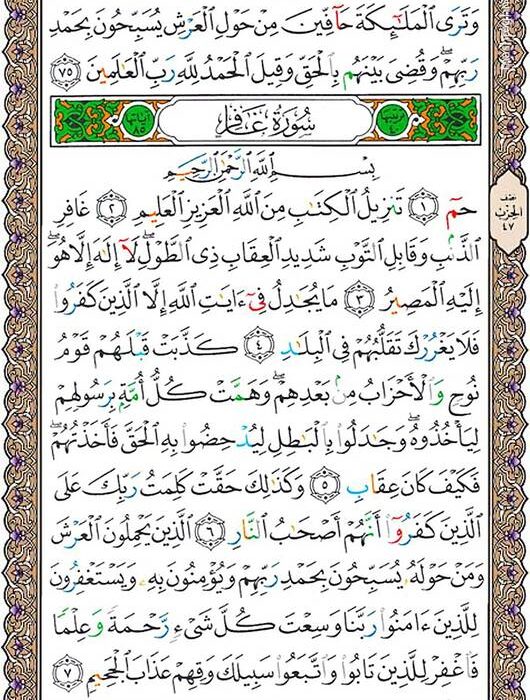 وَتَرَى ٱلْمَلَـٰٓئِكَةَ حَآفِّينَ مِنْ حَوْلِ ٱلْعَرْشِ يُسَبِّحُونَ بِحَمْدِ
رَبِّهِمْ ۖ وَقُضِىَ بَيْنَهُم بِٱلْحَقِّ وَقِيلَ ٱلْحَمْدُ لِلَّهِ رَبِّ ٱلْعَـٰلَمِينَ ٧٥
ترتيبها ٤٠ سُورَةُ غَافِرٍ آياتها ٨٥
بِسْمِ ٱللَّهِ ٱلرَّحْمَـٰنِ ٱلرَّحِيمِ
حمٓ ١ تَنزِيلُ ٱلْكِتَـٰبِ مِنَ ٱللَّهِ ٱلْعَزِيزِ ٱلْعَلِيمِ ٢ غَافِرِ
نصف الحزب ٤٧
ٱلذَّنۢبِ وَقَابِلِ ٱلتَّوْبِ شَدِيدِ ٱلْعِقَابِ ذِى ٱلطَّوْلِ ۖ لَآ إِلَـٰهَ إِلَّا هُوَ ۖ
إِلَيْهِ ٱلْمَصِيرُ ٣ مَا يُجَـٰدِلُ فِىٓ ءَايَـٰتِ ٱللَّهِ إِلَّا ٱلَّذِينَ كَفَرُوا۟
فَلَا يَغْرُرْكَ تَقَلُّبُهُمْ فِى ٱلْبِلَـٰدِ ٤ كَذَّبَتْ قَبْلَهُمْ قَوْمُ
نُوحٍ وَٱلْأَحْزَابُ مِنۢ بَعْدِهِمْ ۖ وَهَمَّتْ كُلُّ أُمَّةٍۭ بِرَسُولِهِمْ
لِيَأْخُذُوهُ ۖ وَجَـٰدَلُوا۟ بِٱلْبَـٰطِلِ لِيُدْحِضُوا۟ بِهِ ٱلْحَقَّ فَأَخَذْتُهُمْ ۖ
فَكَيْفَ كَانَ عِقَابِ ٥ وَكَذَٰلِكَ حَقَّتْ كَلِمَتُ رَبِّكَ عَلَى
ٱلَّذِينَ كَفَرُوٓا۟ أَنَّهُمْ أَصْحَـٰبُ ٱلنَّارِ ٦ ٱلَّذِينَ يَحْمِلُونَ ٱلْعَرْشَ
وَمَنْ حَوْلَهُۥ يُسَبِّحُونَ بِحَمْدِ رَبِّهِمْ وَيُؤْمِنُونَ بِهِۦ وَيَسْتَغْفِرُونَ
لِلَّذِينَ ءَامَنُوا۟ رَبَّنَا وَسِعْتَ كُلَّ شَىْءٍ رَّحْمَةً وَعِلْمًا
فَٱغْفِرْ لِلَّذِينَ تَابُوا۟ وَٱتَّبَعُوا۟ سَبِيلَكَ وَقِهِمْ عَذَابَ ٱلْجَحِيمِ ٧